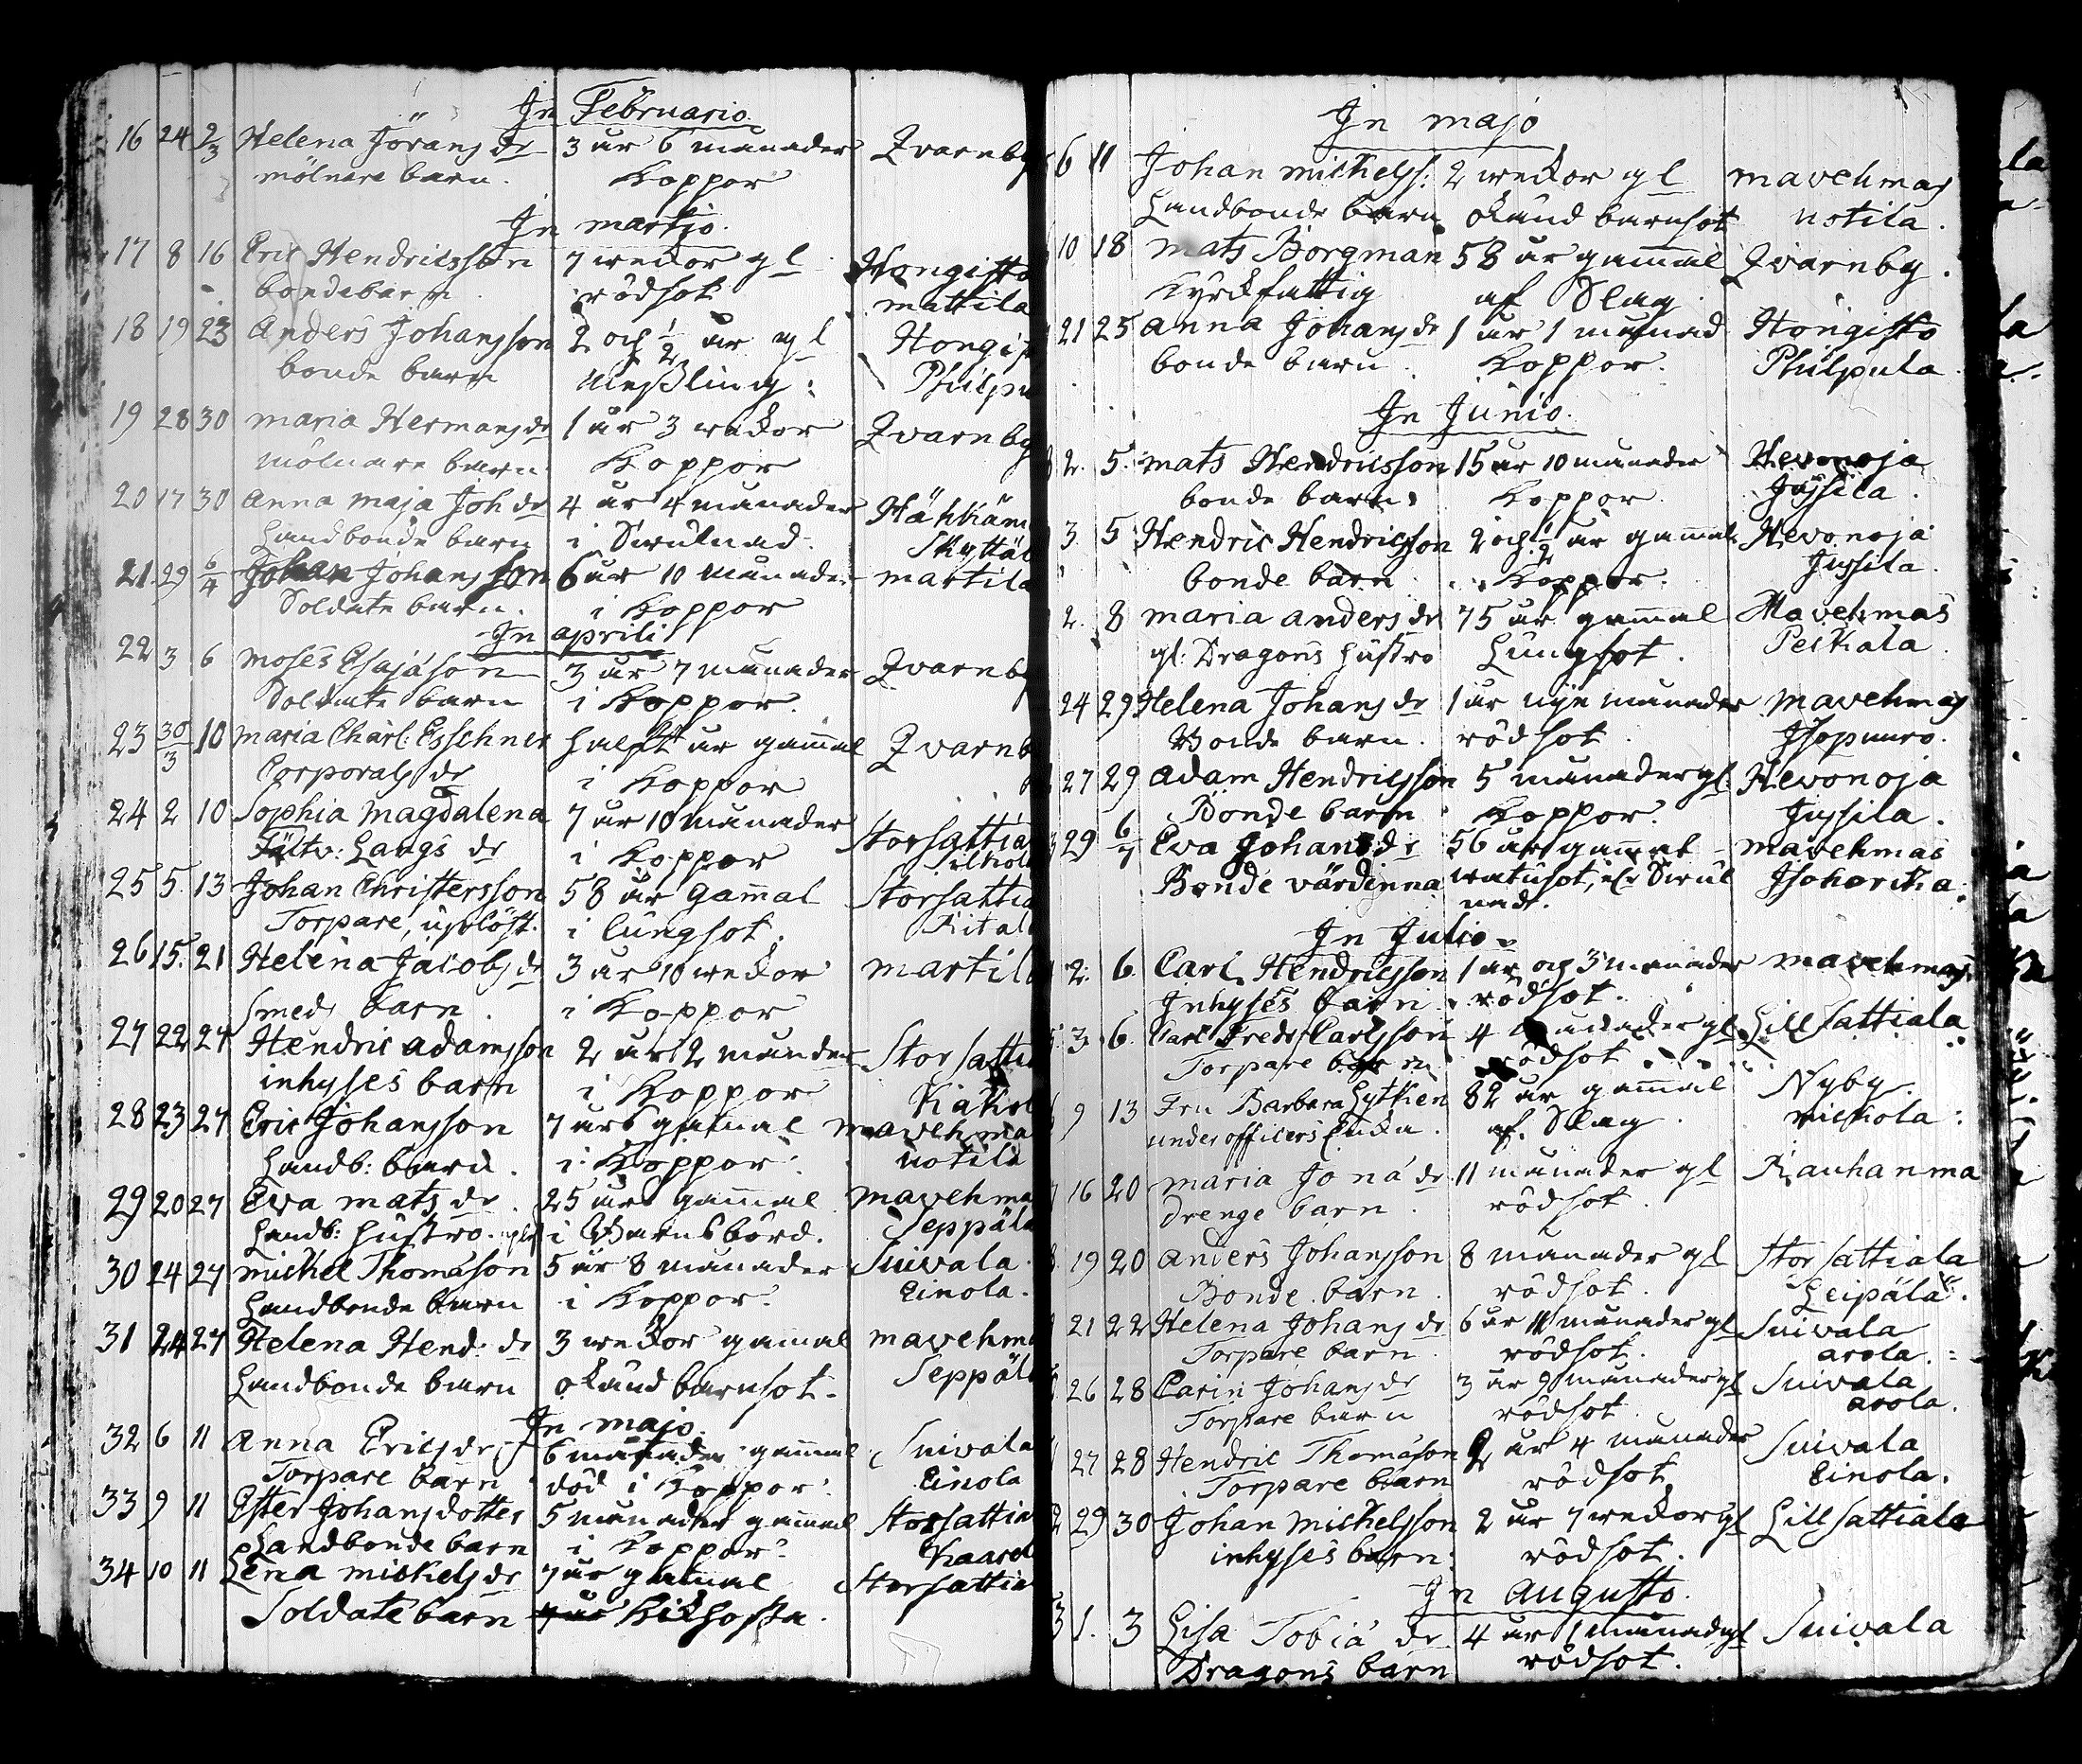 In Februario
16 24 2/3 Helena Jörans dr 3 år 6 månader Qvarnby
mölnare barn. Koppor
In martio.
17 8 16 Eric Hendricsson 7 wekor gl Hongisto
bondebarn rödsot mattila
18 19 23 Anders Johansson 2 och 1/2 år gl Hongis
bonde barn Meßling: Philpu
19 28 30 maria Hermans dr 1 år 3 wekor Qvarnby
mölnare barn Koppor
20 17 30 anna maja Joh dr 4 år 4 månader Hähkäm
Landbonde barn i Swulnad. Skyttäl
21 29 6/4 Johan Johansson 6 år 10 månader martila
Soldate barn. i Koppor
In aprili
22 3 6 moses Esajáson 3 år 7 månader Qvarnby
Soldate barn i Koppor.
23 30/3 10 maria Charl: Esschner halft år gam̄al Qvarnb
Corporals dr i Koppor
24 2 10 Sophia magdalena 7 år 10 månader Storsattia
Fältv: Langs dr i Koppor
25 5. 13 Johan Christersson 58 år gam̄al Storsattia
Torpare, i lungsot.
26 15. 21 Helena Jacobs dr 3 år 10 wekor martila
Smeds barn. i Koppor
27 22 27 Hendric adamsson 2 år 2 månader Storsatti
inhyses barn i Koppor
28 23 27 Eric Johansson 7 år gam̄al mavehma
Landb: barn. i Koppor. uotila
29 20 27 Eva mats dr 25 år gam̄al mavehma
Landb: hustro. i Barnsbörd. Seppäla
30 24 27 michel Thomáson 5 år 8 månader Suivala
Landbonde barn i Koppor. Einola.
31 24 27 Helena Hend: dr 3 wekor gamal mavehma
Landbonde barn okänd barnsot. Seppäl
In majo.
32 6 11 Anna Erics dr 6 månader gam̄al Suivala
Torpare barn död i Koppor. Einola
33 9 11 Ester Johans dotter 5 månader gam̄al Storsattia
Landbonde barn i Koppor. Kaarel
34 10 11 Lena michels dr 7 år gamal Storsattia
Soldate barn 7 år Kikhosta.
In majo
6 11 Johan michelss: 2 wekor gl mavehmas
Landbonde barn okänd barnsot uotila.
10 18 mats Borgman 58 år gam̄al Qvarnby.
Kyrckfattig af Slag
21 25 anna Johans dr 1 år 1 månad Hongisto
bonde barn. Koppor. Philpula
In Junio.
2. 5. mats Hendricsson 15 år 10 månader Hevonoja
bonde barn. Koppor Jussila.
3. 5 Hendric Hendricsson 2 och 1/2 år gam̄al Hevonoja
bonde barn Koppor. Jussila.
2. 8 maria anders dr 75 år gam̄al Mavehmas
gl: Dragons hustro Lungsot. Peckala
24 29 Helena Johans dr 1 år nije månader mavehmas
Bonde barn. rödsot. Isopuuro.
27 29 adam Hendricsson 5 månader gl: Hevonoja
Bonde barn Koppor. Jussila.
29 6/7 Eva Johans dr 56 år gam̄al mavehmas
Bonde värdinna watusot, el Swul Isohorcka.
nadt.
In Julio
2. 6. Carl Hendricsson 1 år och 3 månader mavehmas
Inhyses barn. rödsot.
3. 6. Carl Fredr Carlsson 4 månader gl Lill Sattiala
Torpare barn rödsot
9 13 Fru Barbara Lytkien 82 år gam̄al Nyby
underofficers Enka. af Slag. michola.
16 20 maria Joná dr 11 månader gl Rauhanma
Drenge barn. rödsot
19 20 anders Johansson 8 månader gl Stor Sattiala
Bonde barn. rödsot. Leipälä.
21 22 Helena Johans dr 6 år 11 månader gl Suivala
Torpare barn. rödsot. arola.
26 28 Carin Johans dr 3 år 9 månader gl Suivala
Torpare barn rödsot. arola.
27 28 Hendric Thomásson 2 år 4 månader Suivala
Torpare barn rödsot Einola.
29 30 Johan Michelsson 2 år 7 wekor gl Lill Sattiala
inhyses barn. rödsot.
In Augusto.
1. 3 Lisa Tobiá dr 4 år 1 månad gl Suivala
Dragons barn rödsot.